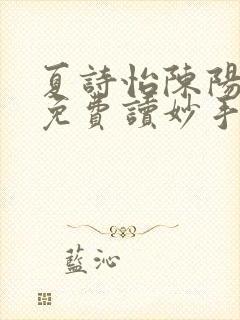 夏詩怡陳陽
免費讀妙手
藍沁